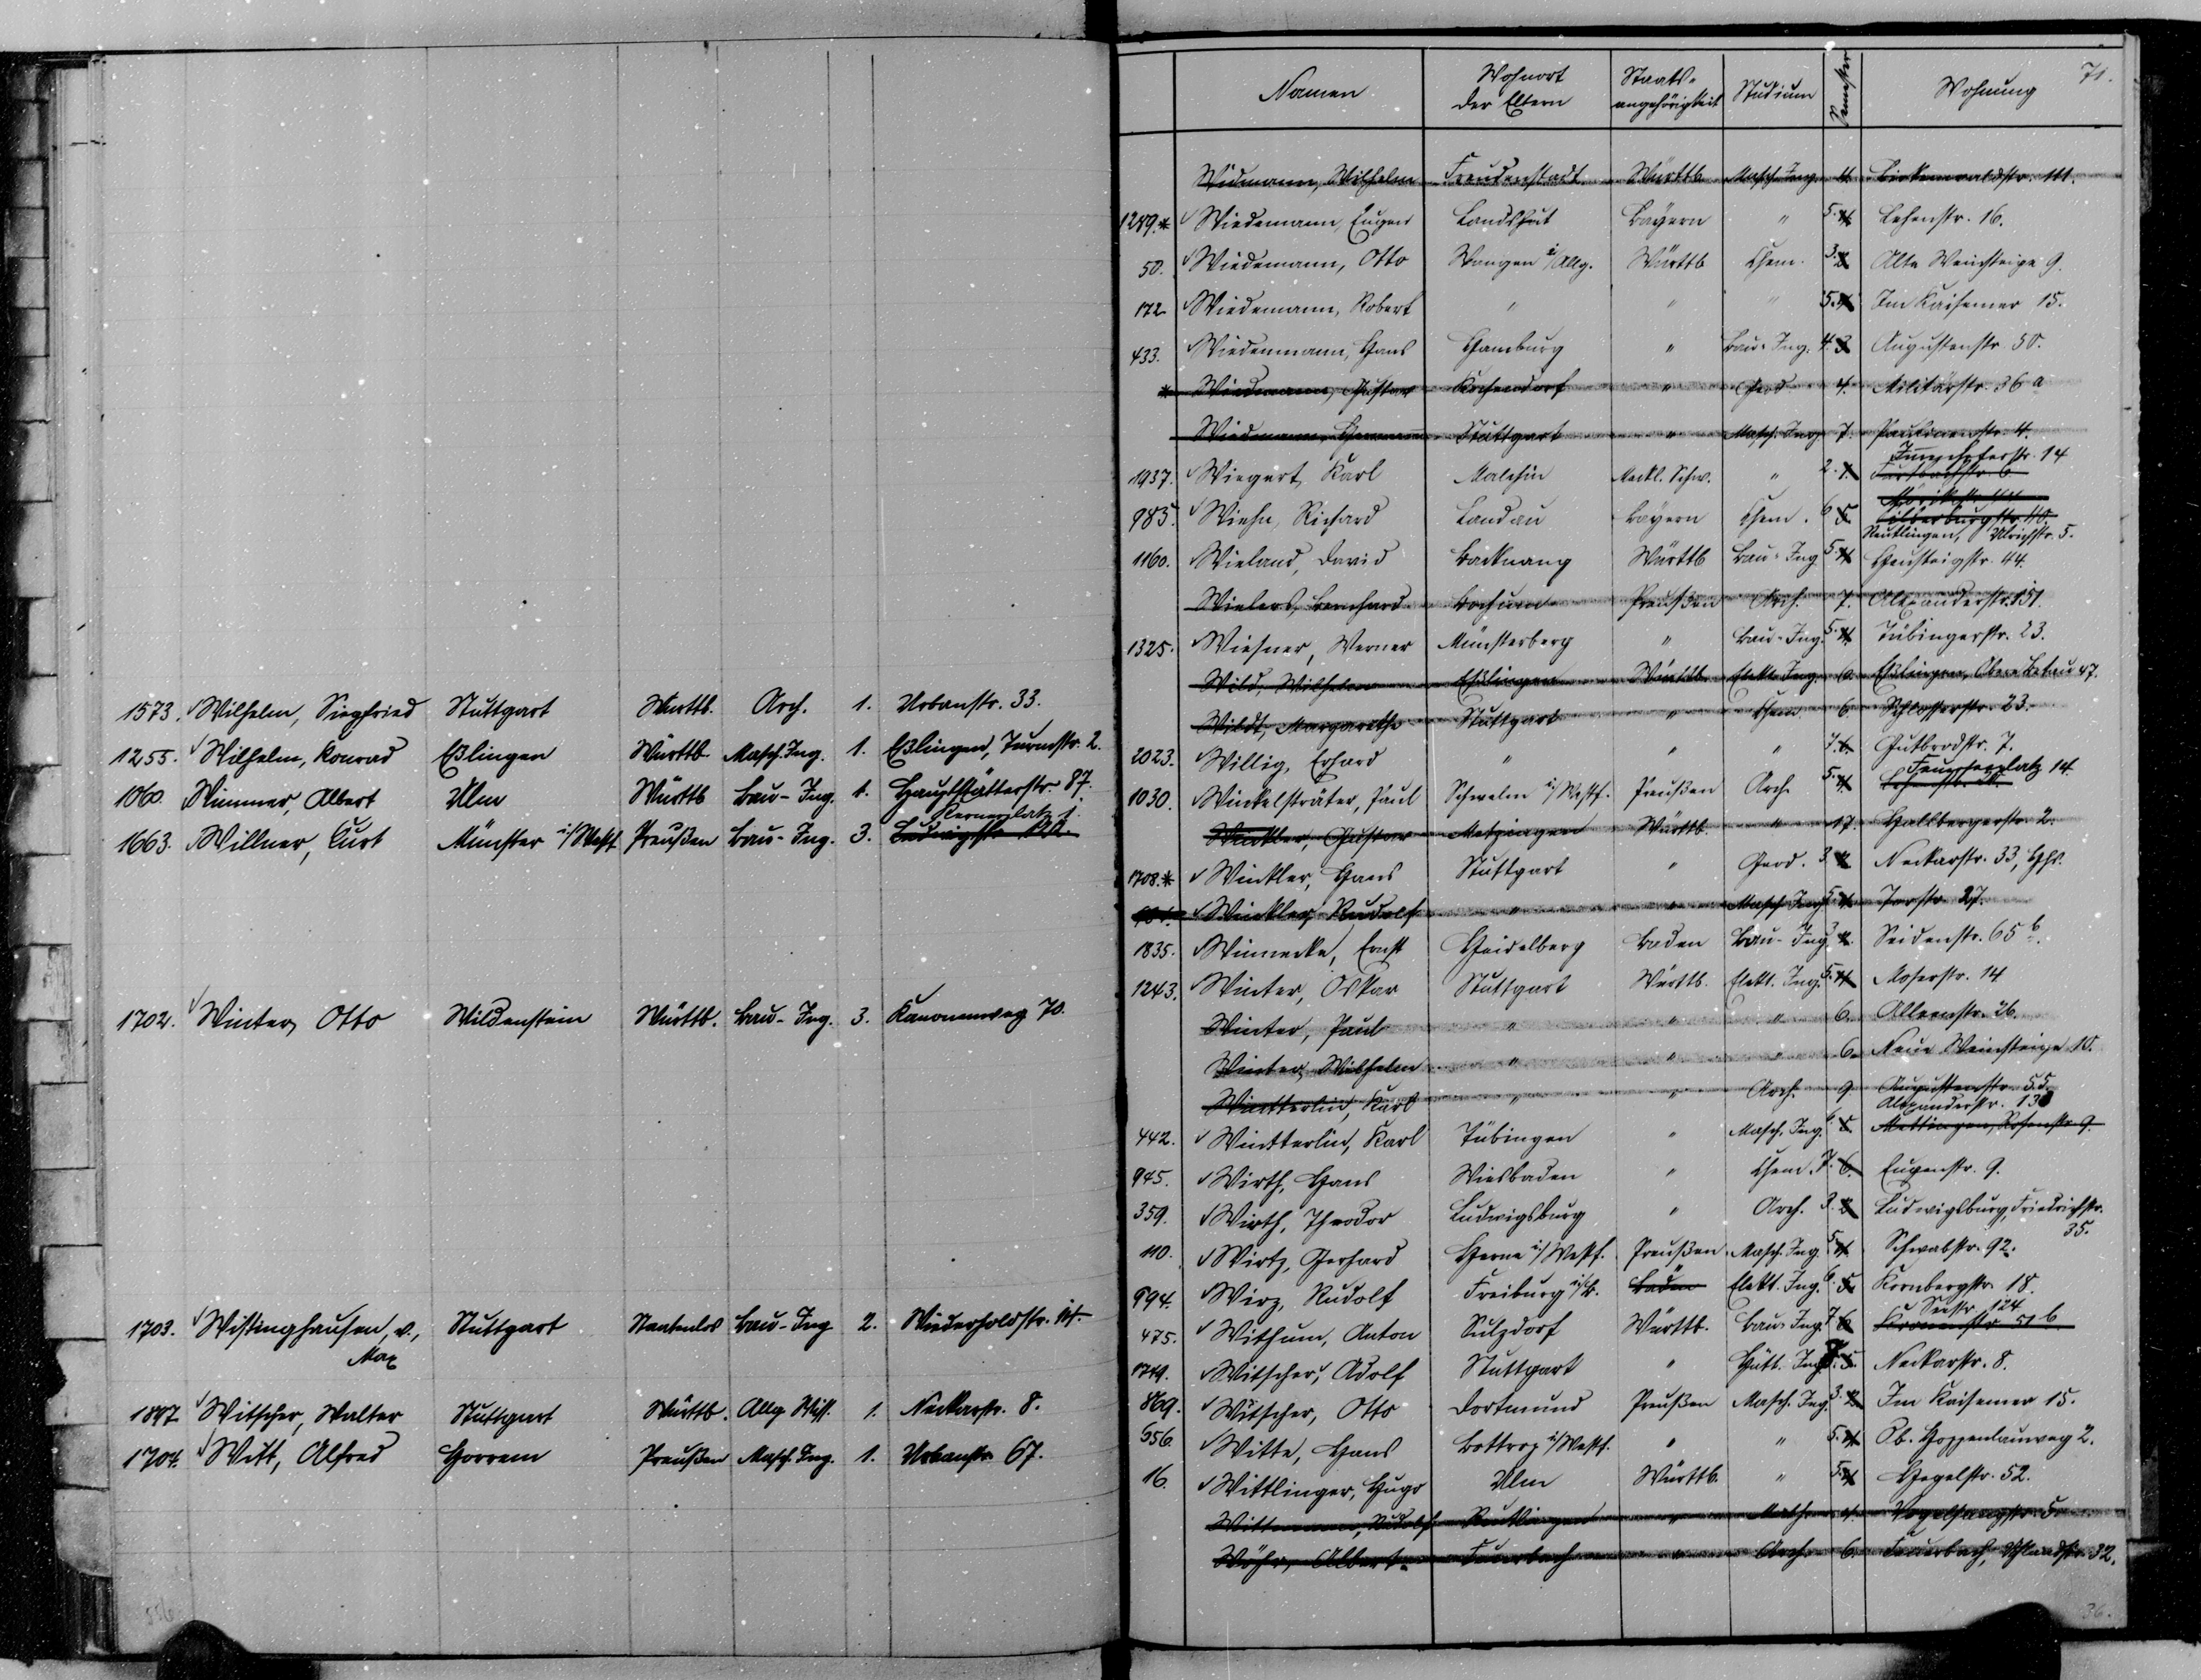 1573. Wilhelm, Siegfried Stuttgart Württb. Arch. 1. Urbanstr. 33.
1255. Wilhelm, Konrad Eßlingen Württb. Masch. Ing. 1. Eßlingen, Turmstr. 2.
1060. Wimmer, Albert Ulm Württb Bau-Ing. 1. Hauptstätterstr. 87.
Kernerplatz 1.
1663. Willner, Curt Münster i/Westf. Preußen Bau-Ing. 3. Ludwigstr.
1702. Winter, Otto Wildenstein Württb. Bau-Ing. 3. Kanonenweg 70.
1703. Wistinghausen, v., Stuttgart Staatenlos Bau-Ing 2. Wiederholdstr.
Max
1897 Witscher, Walter Stuttgart Württb. Allg Wiss. 1. Neckarstr. 8.
1704. Witt, Alfred Horrem Preußen Masch. Ing. 1. Urbanstr. 67.
71.
Namen Wohnort der Eltern Staats-angehörigkeit Studium Semester Wohnung
Widmann, Wilhelm Freudenstadt Württb Masch. Ing. 4. Birkenwaldstr. 111.
1289.* Wiedemann, Eugen Landshut Bayern " 5. 4. Lehenstr. 16.
50. Wiedemann, Otto Wangen i/Allg. Württb Chem. 3. 2. Alte Weinsteige 9.
172 Wiedemann, Robert " " " 5. 4. Im Kaisemer 15.
433. Wiedenmann, Hans Hamburg " Bau-Ing. 4. 3. Augustenstr. 50.
* Wiedmann, Gustav Kochendorf " Geod. 4. Militärstr. 36 a
Wiedmann, Hermann Stuttgart " Masch. Ing. 7. Paulinenstr. 4.
14
1937. Wiegert, Karl Malchin Meckl. Schw. " 2. 1. Furtbachstr. 6
983. Wiehn, Richard Landau Bayern Chem. 6 5. Silberburgstr. 110.
Reutlingen, Ulrichstr. 5.
1160. Wieland, David Backnang Württb Bau-Ing 5. 4. Heusteigstr. 44.
Wielers, Bernhard Bochum Preußen Arch. 7. Alexanderstr. 151.
1325. Wiesner, Werner Münsterberg " Bau-Ing. 5. 4. Tübingerstr. 23.
Wild, Wilhelm Eßlingen Württb. Elekt. Ing. 6. Eßlingen, Obere Beutau 47.
Wildt, Margarethe Stuttgart " Chem 6. Schloßstr. 23.
2023. Willig, Erhard " " " 7. 6. Gutbrodstr. 7.
Feuerseeplatz 14.
1030. Winkelsträter, Paul Schwelm i/Westf. Preußen Arch 5. 4.
Winkler, Gustav Metzingen Württb " 17. Hallbergerstr. 2.
1708.* Winkler, Hans Stuttgart " Geod. 3. 2. Neckarstr. 33, Hhs.
Winkler, Rudolf " " Masch. Ing. 5. 4. Torstr. 27.
1835. Winnecke, Ernst Heidelberg Baden Bau-Ing 3. 2. Seidenstr. 65 b.
1243. Winter, Oskar Stuttgart Württb. Elekt. Ing. 5. 4. Moserstr. 14
Winter, Paul " " " 6. Alleenstr. 26.
Winter, Wilhelm " " " 6. Neue Weinsteige 10.
Wintterlin, Karl " " Arch. 9. Augustenstr. 55.
Alexanderstr. 13
442. Wintterlin, Karl Tübingen " Masch. Ing. 6. 5. Mettingen, Rosenstr. 9.
945. Wirth, Hans Wiesbaden " Chem. 7. 6. Eugenstr. 9.
359. Wirth, Theodor Ludwigsburg " Arch. 3. 2. Ludwigsburg, Friedrichstr. 35.
110. Wirtz, Gerhard Herne i/Westf. Preußen Masch. Ing. 5. 4. Schwabstr. 92.
994. Wirz, Rudolf Freiburg i/B. Baden Elekt. Ing. 6. 5. Kornbergstr. 18.
Seestr. 124
475. Withum, Anton Sulzdorf Württb. Bau-Ing. 7. 6. Kronenstr. 51 b
1749. Witscher, Adolf Stuttgart " Hütt. Ing. 5. Neckarstr. 8.
869. Witscher, Otto Dortmund Preußen Masch. Ing. 3. 2. Im Kaisemer 15.
556. Witte, Hans Bottrop i/Westf. " " 5. 4. Ob. Hoppenlauweg 2.
16. Wittlinger, Hugo Ulm Württb. " 5. 4. Hegelstr. 52.
Wittmann, Rudolf Reutlingen " Math. 4. Vogelsangstr. 5
Wöhr, Albert. Feuerbach " Arch 6. Feuerbach, Uhlandstr. 32.
36.